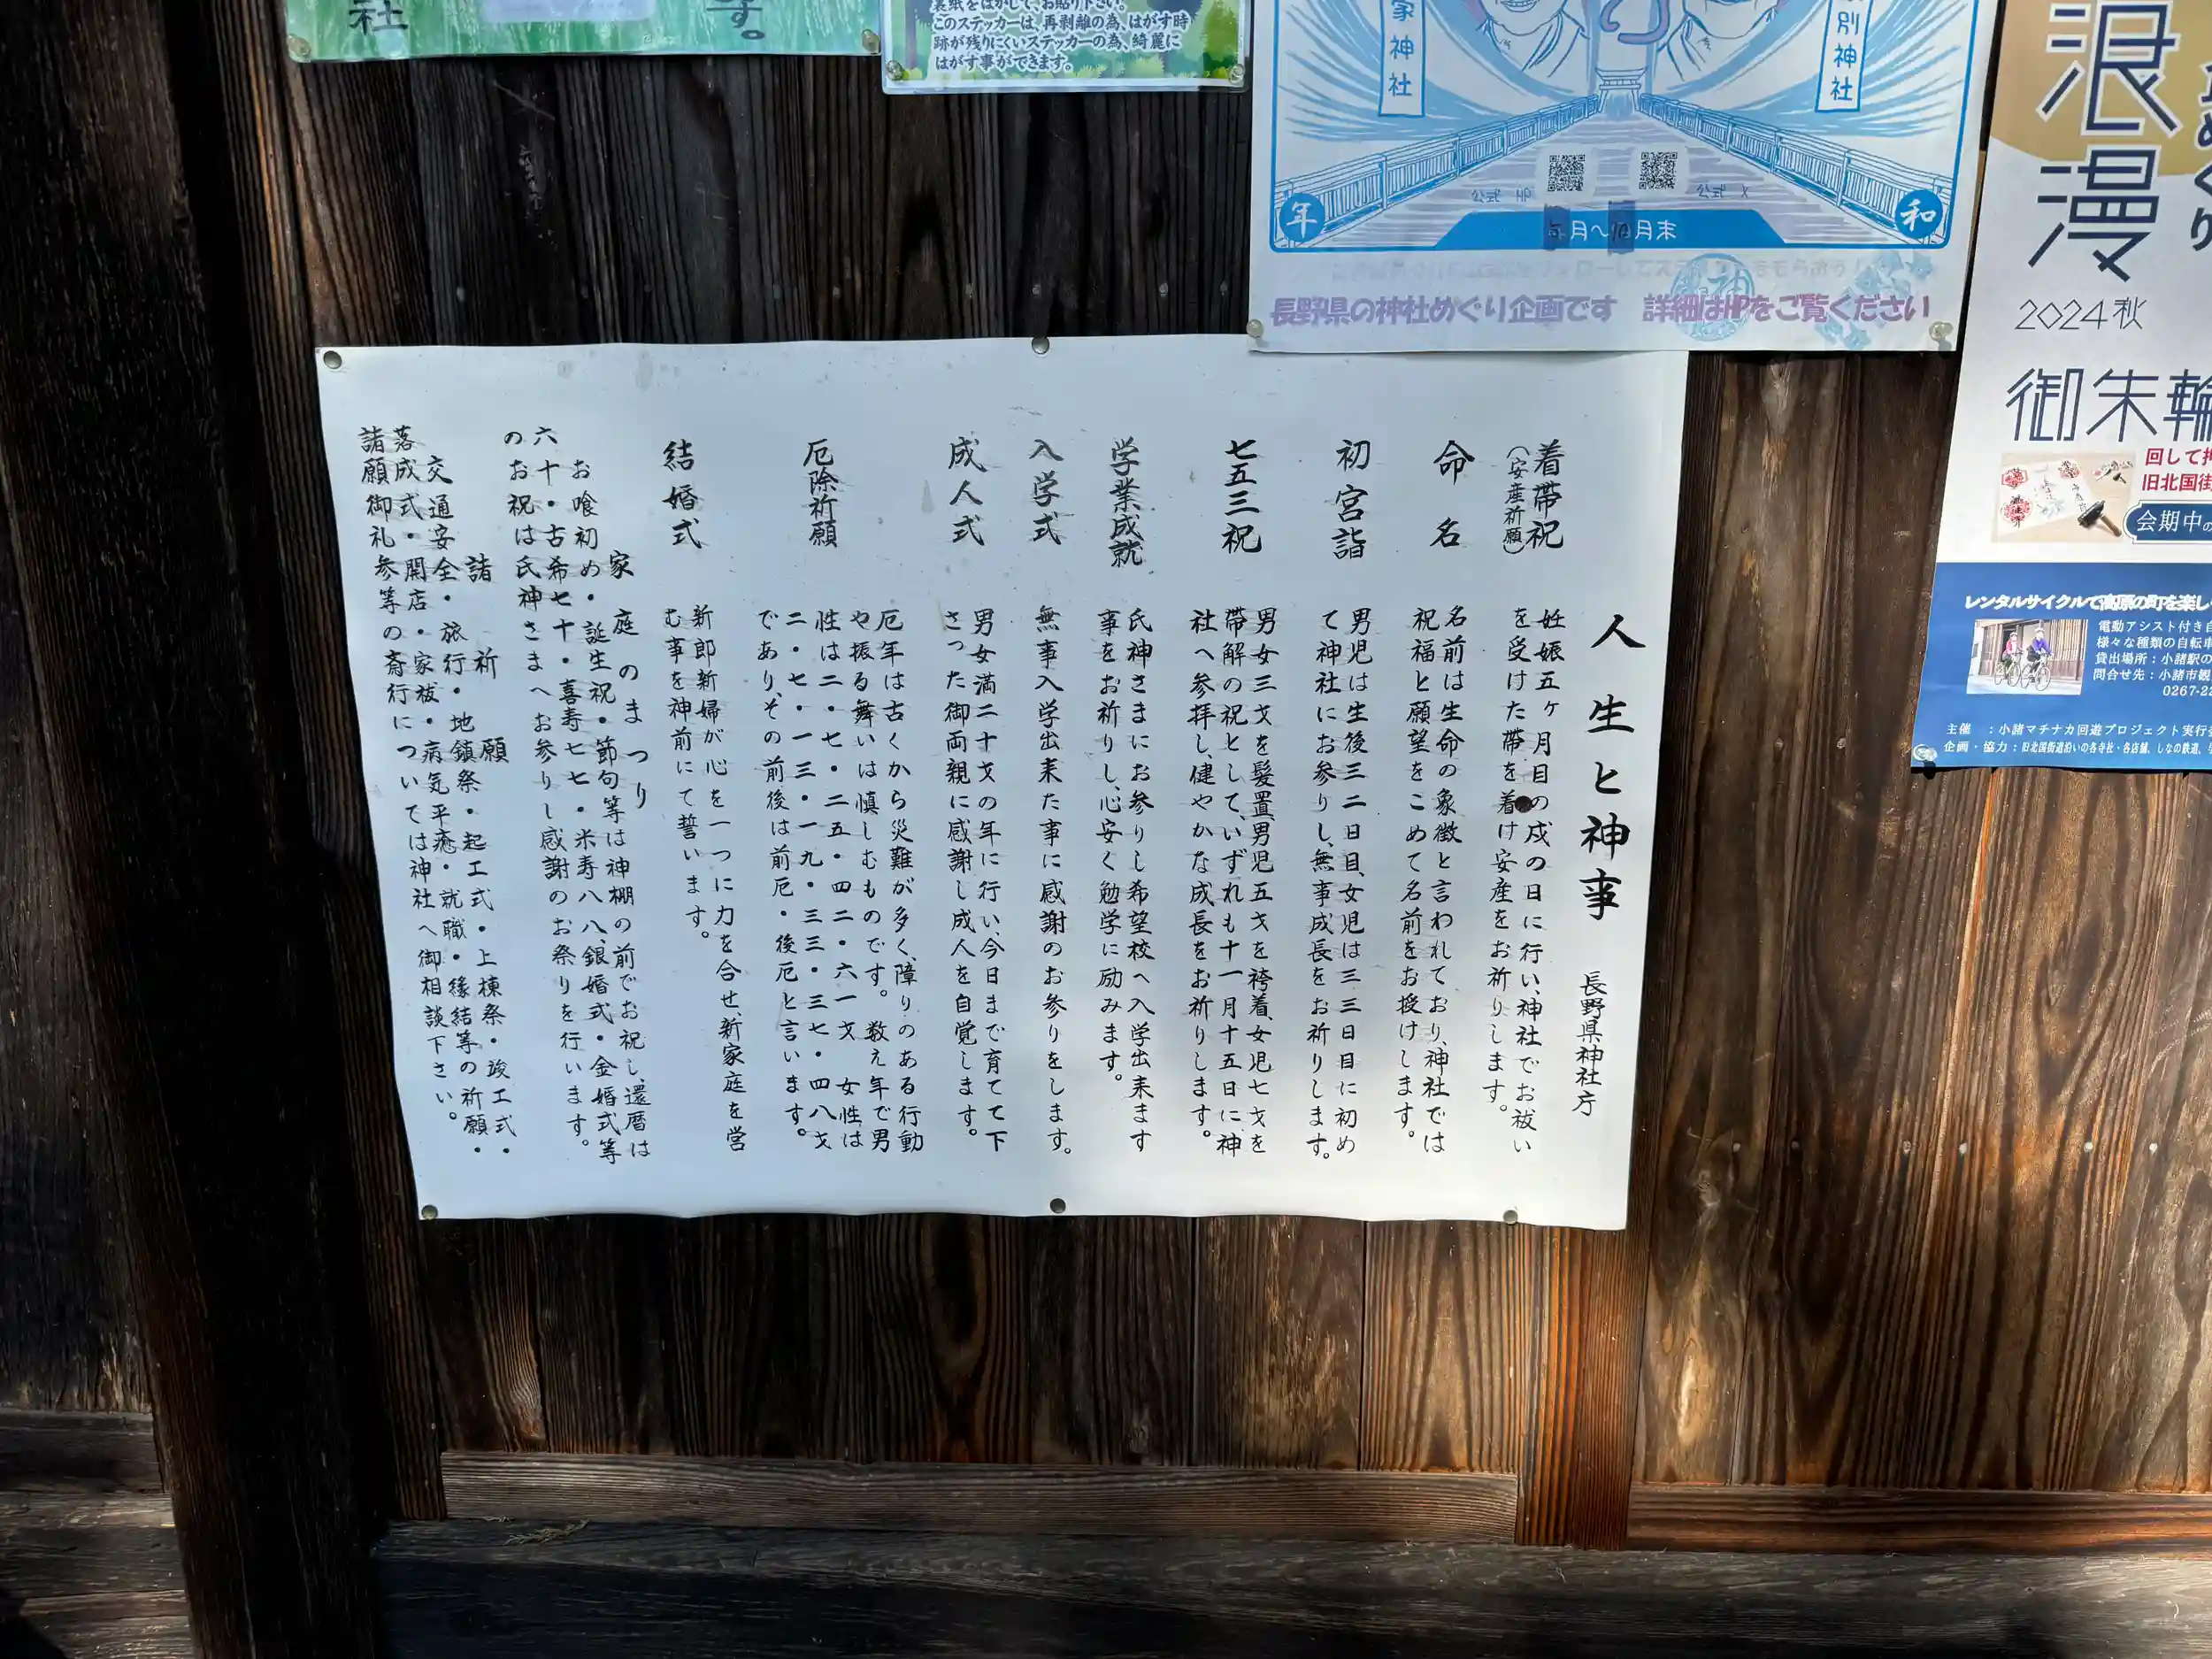 社
す。
裏紙をはがして、お貼り下さい。
このステッカーは、再剥離の為、はがす時
跡が残りにくいステッカーの為、綺麗に
はがす事ができます。
家神社
別神社
公式 HP
公式 X
年
月〜
月末
和
長野県の神社めぐり企画です 詳細はHPをご覧ください
浪漫
めぐり
2024秋
御朱輪
回して押
旧北国街
会期中の
レンタルサイクルで高原の町を楽し
電動アシスト付き自
様々な種類の自転車
貸出場所:小諸駅の
問合せ先:小諸市観
0267-22
主催 :小諸マチナカ回遊プロジェクト実行委
企画・協力:旧北国街道沿いの各寺社・各店舗、しなの鉄道、
人生と神事 長野県神社庁
着帯祝
(安産祈願)
妊娠五ヶ月目の戌の日に行い、神社でお祓い
を受けた帯を着け安産をお祈りします。
命名
名前は生命の象徴と言われており、神社では
祝福と願望をこめて名前をお授けします。
初宮詣
男児は生後三二日目、女児は三三日目に初め
て神社にお参りし、無事成長をお祈りします。
七五三祝
男女三才を髪置、男児五才を袴着、女児七才を
帯解の祝として、いずれも十一月十五日に神
社へ参拝し、健やかな成長をお祈りします。
学業成就
氏神さまにお参りし希望校へ入学出来ます
事をお祈りし、心安く勉学に励みます。
入学式
無事入学出来た事に感謝のお参りをします。
成人式
男女満二十才の年に行い、今日まで育てて下
さった御両親に感謝し成人を自覚します。
厄除祈願
厄年は古くから災難が多く、障りのある行動
や振る舞いは慎しむものです。数え年で男
性は二・七・二五・四二・六一才 女性は
二・七・一三・一九・三三・三七・四八才
であり、その前後は前厄・後厄と言います。
結婚式
新郎新婦が心を一つに力を合せ、新家庭を営
む事を神前にて誓います。
家庭のまつり
お喰初め・誕生祝・節句等は神棚の前でお祝し、還暦は
六十・古希七十・喜寿七七・米寿八八、銀婚式・金婚式等
のお祝は氏神さまへお参りし感謝のお祭りを行います。
諸祈願
交通安全・旅行・地鎮祭・起工式・上棟祭・竣工式・
落成式・開店・家祓・病気平癒・就職・縁結等の祈願・
諸願御礼参等の斎行については神社へ御相談下さい。